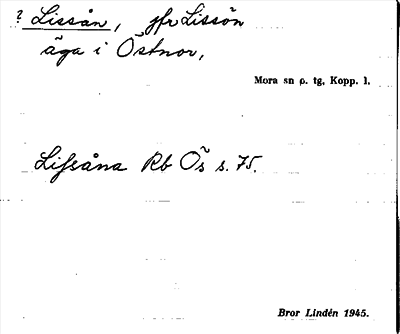 ? Lissån, jfr Lissön
äga i Östnor,
Mora sn o. tg, Kopp. l.
Lißåna Rb Ös s. 75.
Bror Lindén 1945.